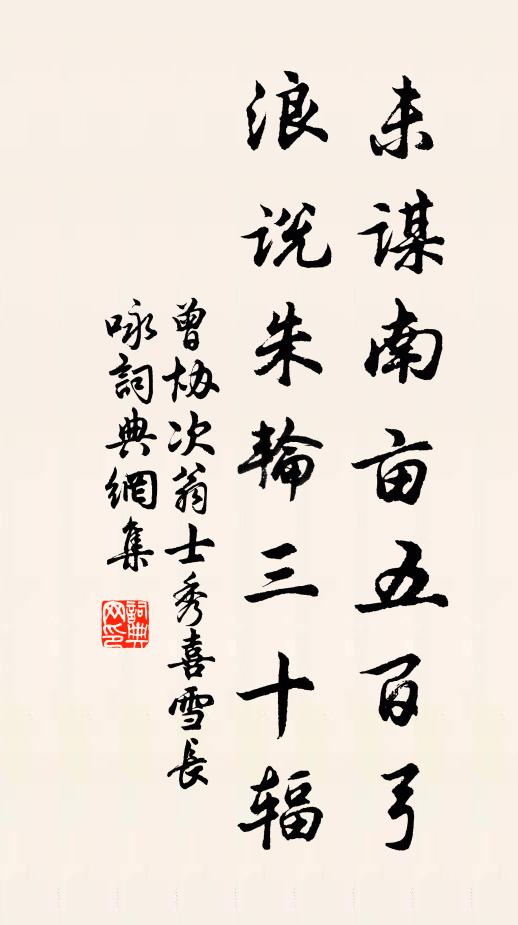 未谋南亩五百弓
浪说朱轮三十辐
曾协次翁士秀喜雪長
咏詞典網集
詞典网印